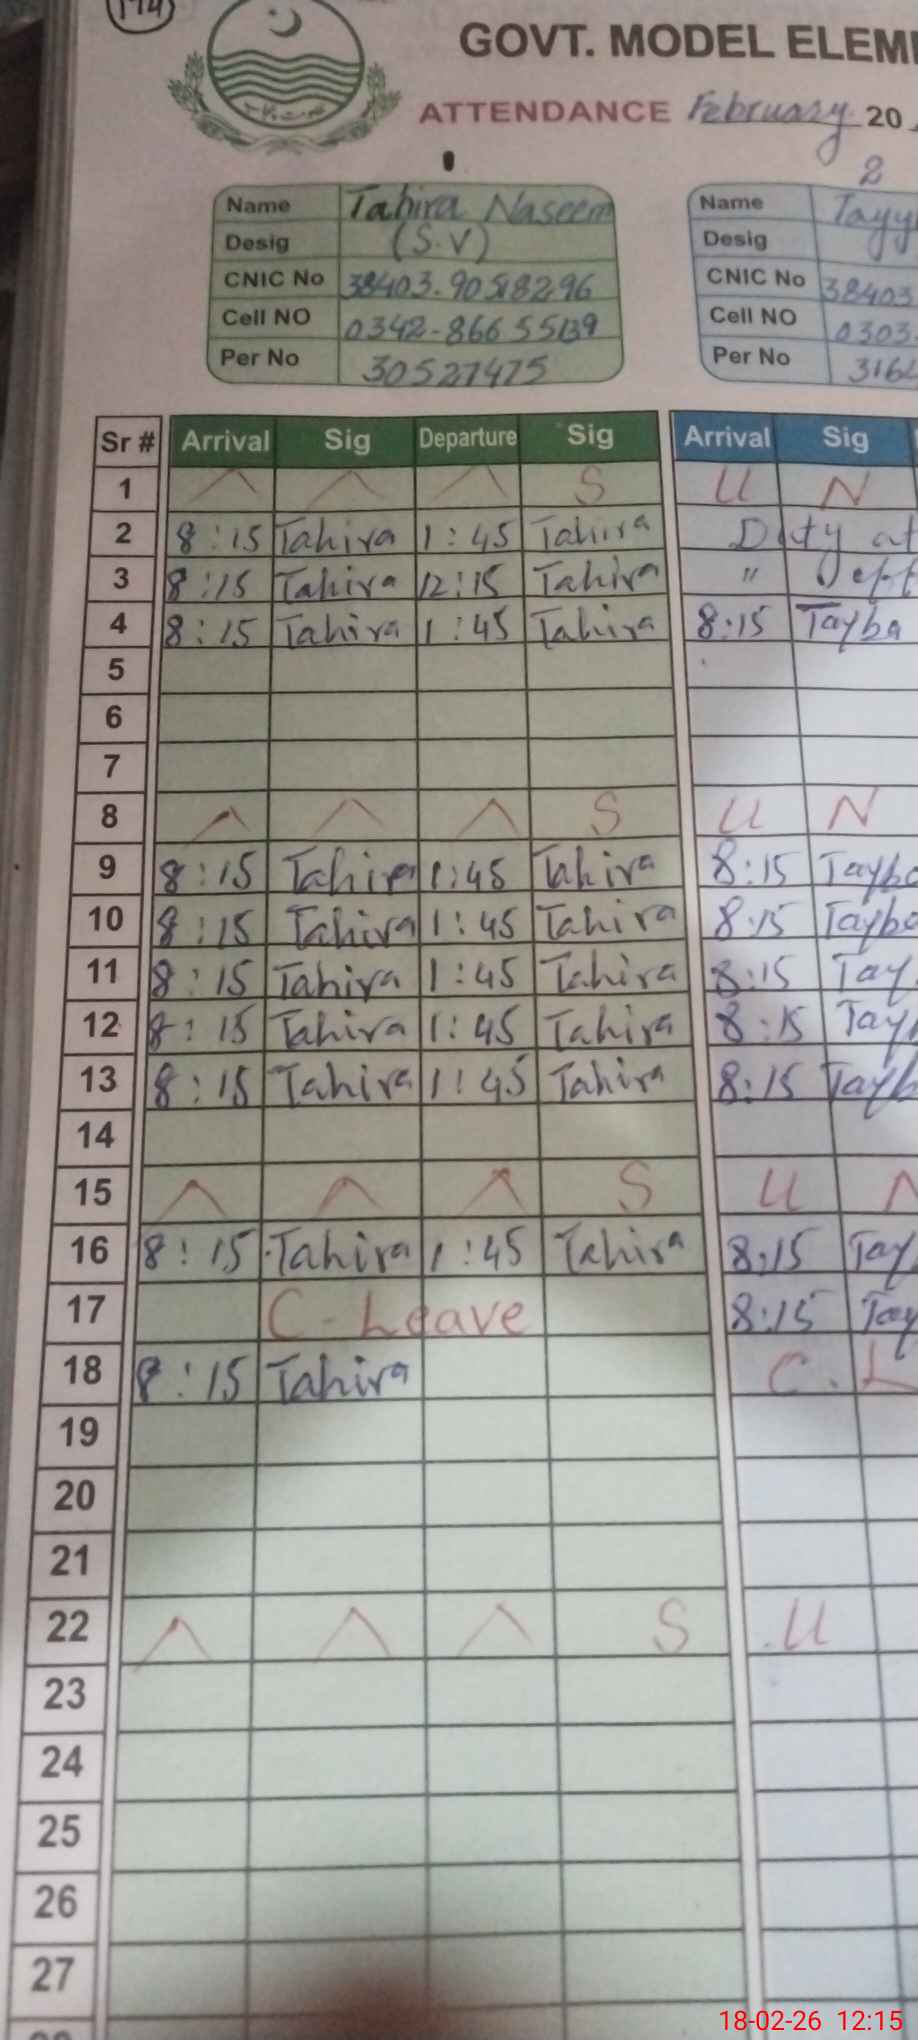 174
GOVT. MODEL ELEM
ATTENDANCE February 20
Name Tahira Naseem
Desig (S.V)
CNIC No
Cell NO
Per No 30527475
2
Name Tayy
Desig
CNIC No 38403
Cell NO 0303
Per No 316
Sr # Arrival Sig Departure Sig Arrival Sig
1 ^ ^ ^ S U N
2 8:15 Tahira 1:45 Tahira Duty at
3 8:15 Tahira 12:15 Tahira "
4 8:15 Tahira 1:45 Tahira 8:15 Tayba
5
6
7
8 ^ ^ ^ S U N
9 8:15 Tahira 1:45 Tahira 8:15 Tayba
10 8:15 Tahira 1:45 Tahira 8:15 Tayba
11 8:15 Tahira 1:45 Tahira 8:15 Tay
12 8:15 Tahira 1:45 Tahira 8:15 Tay
13 8:15 Tahira 1:45 Tahira 8:15 Tayb
14
15 ^ ^ ^ S U N
16 8:15 Tahira 1:45 Tahira 8:15 Tay
17 C-Leave 8:15 Tay
18 8:15 Tahira C.L
19
20
21
22 ^ ^ ^ S U
23
24
25
26
27
18-02-26 12:15